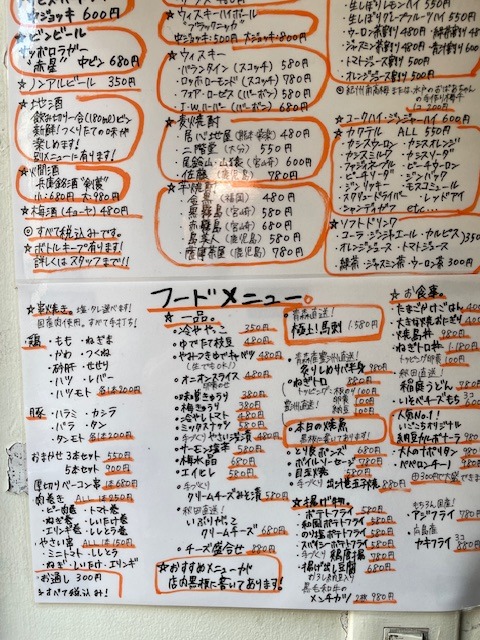 中ジョッキ 600円
★ビンビール
サッポロラガー
"赤星" 中ビン 680円
★ノンアルビール 350円
★地酒
飲み切り一合(180ml)ビン
新鮮!つくりたての味が
楽しめます!
別メニュー有ります!
★燗酒
小:680円 大:980円
★梅酒(チョーヤ)480円
◎すべて税込みです。
★ボトルキープ有ります!
詳しくはスタッフまで!!
★ウィスキーハイボール
"ブラックニッカ"
中ジョッキ:500円 大ジョッキ:800円
★ウィスキー
・バランタイン(スコッチ) 580円
・ロッホローモンド(スコッチ) 780円
・フォア・ローゼス(バーボン) 580円
・I.W.ハーパー(バーボン) 680円
★麦焼酎
480円
・二階堂(大分) 550円
600円
・佐藤(鹿児島) 780円
★芋焼酎
・黒霧島(宮崎) 580円
・赤霧島(宮崎) 680円
・島美人(鹿児島) 580円
・薩摩茶屋(鹿児島) 580円
・生しぼりレモンハイ 550円
・生しぼりグレープフルーツハイ 550円
・トマトジョー割り 500円
・オレンジジュース割り 500円
★コークハイ・ジンジャーハイ 600円
★カクテル ALL 550円
・カシスウーロン ・カシスオレンジ
・カシスミルク ・カシスソーダ
・ファジーネーブル ・ピーチウーロン
・ピーチソーダ ・ジンバック
・ジンリッキー ・モスコミュール
・スクリュードライバー ・レッドアイ
・シャンディガフ etc...
★ソフトドリンク
・コーラ・ジンジャエール・カルピス 350円
・オレンジジュース・トマトジュース
・緑茶・ジャスミン茶・ウーロン茶 300円
フードメニュー。
★串焼き。塩・タレ選べます!
国産肉使用。すべて手打ち!
鶏 ・もも ・ねぎま
・かわ ・つくね
・砂肝 ・せせり
・ハツ ・レバー
・ハツモト 各1本200円
豚 ・ハラミ ・カシラ
・バラ ・タン
・タンモト 各1本200円
おまかせ3本セット 550円
5本セット 900円
厚切りベーコン串 1本680円
肉巻き ALL 1本250円
・ピーマン肉巻き ・トマト巻き
・ねぎ巻き ・しいたけ巻き
・エリンギ巻き ・ししとう巻き
やさい串 ALL 1本150円
・ミニトマト ・ししとう
・ねぎ ・しいたけ ・エリンギ
★お通し 300円
◎すべて税込み!
★一品。
・冷ややっこ 350円
・ゆでたて枝豆 480円
・やみつきゆでキャベツ 480円
(生でもOK!)
・オニオンスライス 480円
・味噌きゅうり 380円
・梅きゅうり 380円
・冷やしトマト 480円
・ミックスナッツ 580円
・手づくりやさい浅漬 480円
・サーモン塩辛 580円
・梅水晶 680円
・エイヒレ 580円
・手づくり
クリームチーズみそ漬 580円
秋田直送!
・いぶりがっこ
クリームチーズ 680円
・チーズ盛合せ 880円
★おすすめメニューが
店の黒板に書いてあります!
青森直送!
極上!馬刺 1,580円
・炙りしめさば半身 980円
・ねぎトロ 880円
★本日の焼魚
黒板に書いてあります!
・とり皮ポン酢 680円
・ボイルソーセージ 780円
・手づくり 880円
★揚げ物。
・ポテトフライ 580円
・のり塩ポテトフライ 580円
・スパイシーポテトフライ 580円
・手づくり 鶏唐揚 780円
・揚げ出し豆腐 680円
黒毛和牛の
メンチカツ 2枚 980円
★お食事。
・たまごかけごはん
・大きな焼おにぎり
・焼鳥丼 980円
・ねぎトロ丼
トッピング卵黄 100円
秋田直送!
・稲庭うどん 580円
・いそべチーズもち 600円
人気No.1!
いごこちオリジナル
納豆カルボナーラ 980円
・大人のナポリタン 980円
・ペペロンチーノ 980円
もちろん国産!
アジフライ 780円
広島産
カキフライ 880円